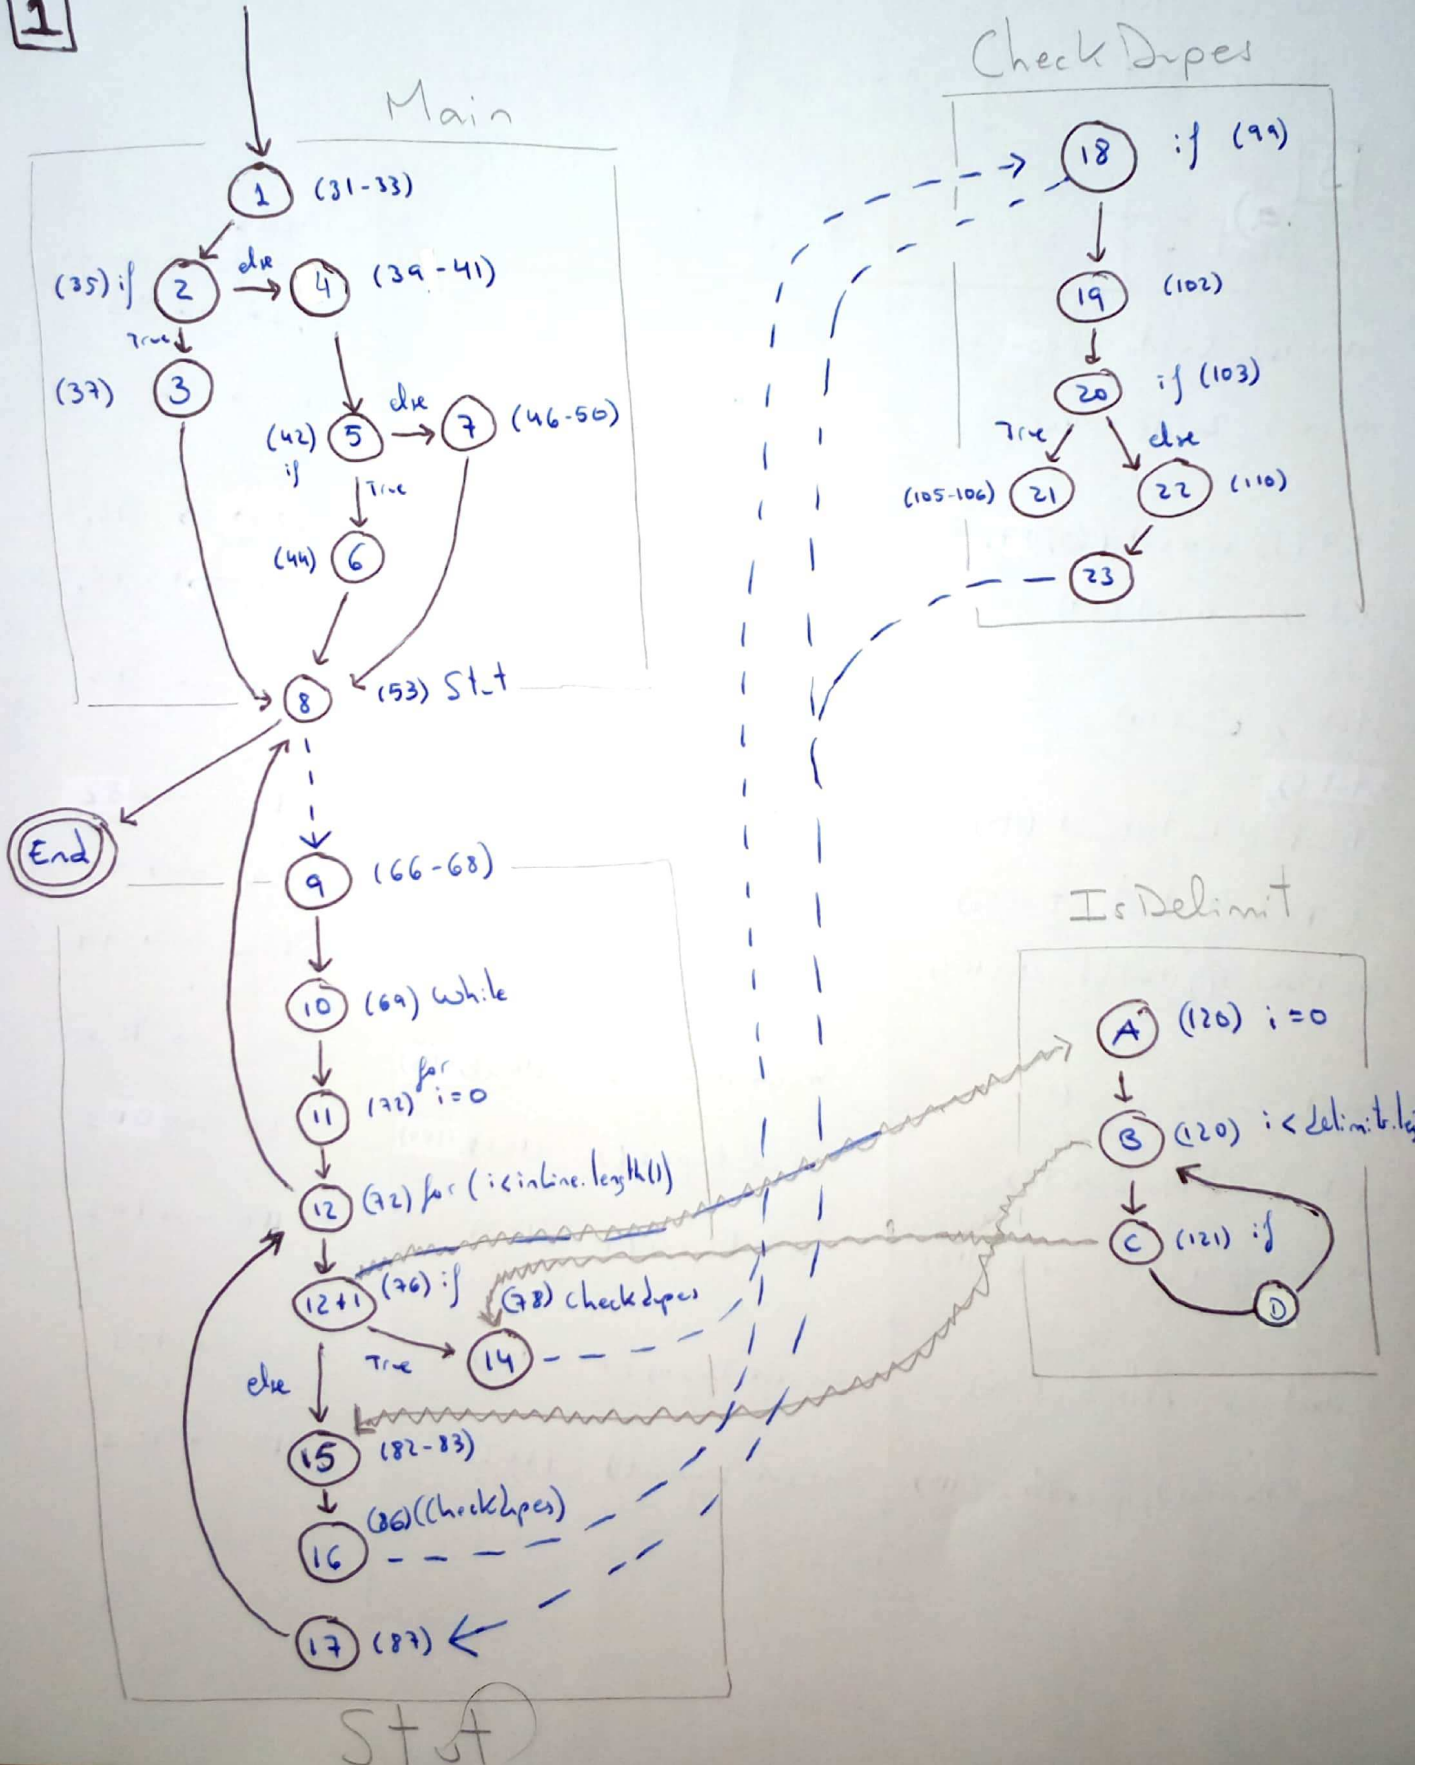 1
Main
1 (31-33)
(35) if 2 else 4 (39-41)
True
(37) 3
(42) 5 else 7 (46-50)
if
True
(44) 6
8 (53) Stut
End
9 (66-68)
10 (69) while
for
11 (72) i=0
12 (72) for (i<inLine.length())
12+1 (76) if
True
(78) checkdupes
14
else
15 (82-83)
16 (86) (Checkdupes)
17 (87)
Stut
Check Dupes
18 if (99)
19 (102)
20 if (103)
True else
(105-106) 21 22 (110)
23
IsDelimit
A (120) i=0
B (120) i<
C (121) if
D